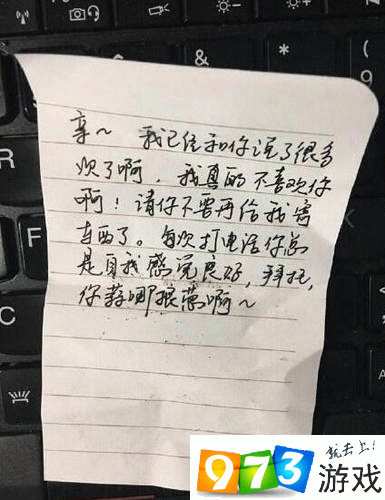 亲～ 我已经和你说了很多
次了啊，我真的不喜欢你
啊！请你不要再给我寄
东西了。每次打电话你总
是自我感觉良好，拜托，
你算哪根葱啊～
R
F
C
*
(
9
就去上！
973游戏